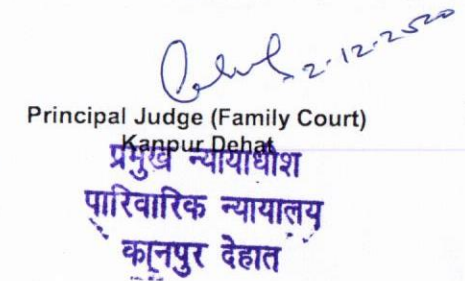 2-12-2020
Principal Judge (Family Court)
Kanpur Dehat
प्रमुख न्यायाधीश
पारिवारिक न्यायालय
कानपुर देहात